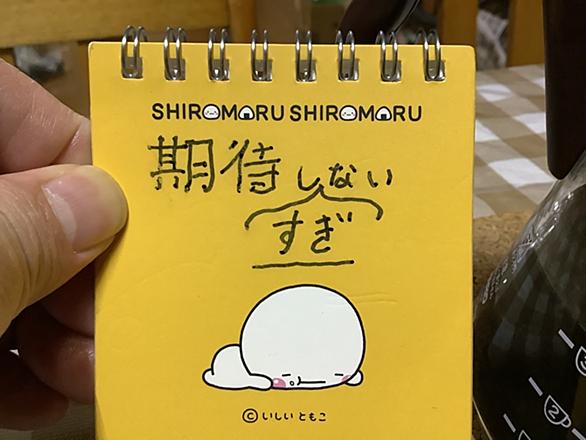 SHIROMARU SHIROMARU
期待しない
すぎ
©いしいともこ
2